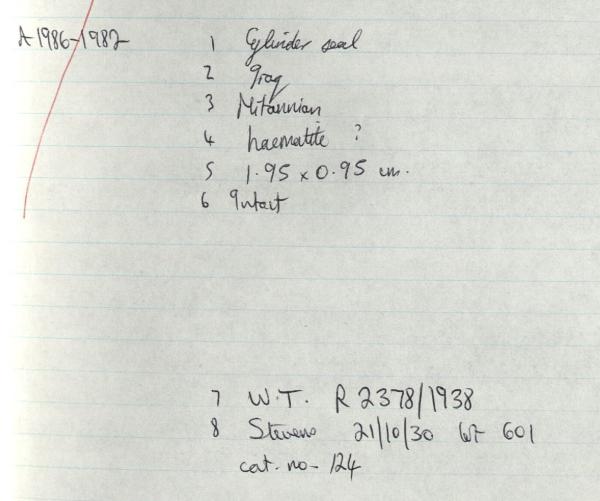 A1986-1982
1 Cylinder seal
2 Iraq
3 Mitannian
4 haematite ?
5 1.95 x 0.95 cm.
6 Intact
7 W.T. R 2378/1938
8 Stevens 21/10/30 lot 601
cat. no- 124